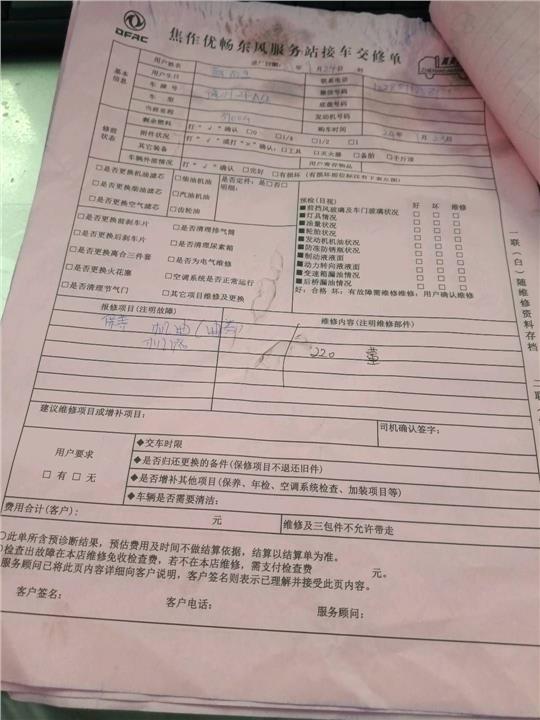 DFAC
焦作优畅东风服务站接车交修单
进厂日期: 年 1月24日 时
基本信息
用户姓名
联系电话
用户生日
微信号码
车牌号
底盘号码
车型
发动机号码
当前里程
购车时间 年1月
修前状态
剩余燃料 打"√"确认 □0 □1/4 □1/2 □1
附件状况 打"√"或打"×"确认: □工具 □灭火器 □备胎 □千斤顶
其它装备
用户寄存物品
车辆外部情况 打"√"确认 □完好 □有损坏(有损坏部位标注有下表左图)
□是否更换机油滤芯 □柴油机油
□是否更换柴油滤芯 □汽油机油
□是否更换空气滤芯 □齿轮油
是否定件: 是□否□
明细:
□是否更换前刹车片 □是否清理排气筒
□是否更换后刹车片 □是否清理尿素箱
□是否更换离合三件套 □是否为电气维修
□是否更换火花塞 □空调系统是否正常运行
□是否清理节气门 □其它项目维修及更换
预检(目视) 好 坏 维修
■前挡风玻璃及车门玻璃状况 □ □ □
■灯具情况 □ □ □
■油量状况 □ □ □
■轮胎状况 □ □ □
■发动机机油状况 □ □ □
■防冻防锈瓶状况 □ □ □
■制动液液面 □ □ □
■动力转向液液面 □ □ □
■变速箱漏油情况 □ □ □
■后桥漏油情况 □ □ □
好: 合格 坏: 有故障需维修维修: 用户确认维修
报修项目(注明故障)
维修内容(注明维修部件)
保养 机油
机滤
220 董
建议维修项目或增补项目:
司机确认签字:
用户要求
□有 □无
◆交车时限
◆是否归还更换的备件(保修项目不退还旧件)
◆是否增补其他项目(保养、年检、空调系统检查、加装项目等)
◆车辆是否需要清洁:
费用合计(客户): 元
维修及三包件不允许带走
○此单所含预诊断结果,预估费用及时间不做结算依据,结算以结算单为准。
○检查出故障在本店维修免收检查费,若不在本店维修,需支付检查费 元。
服务顾问已将此页内容详细向客户说明,客户签名则表示已理解并接受此页内容。
客户签名: 客户电话: 服务顾问:
一联(白)随维修资料存档
二联